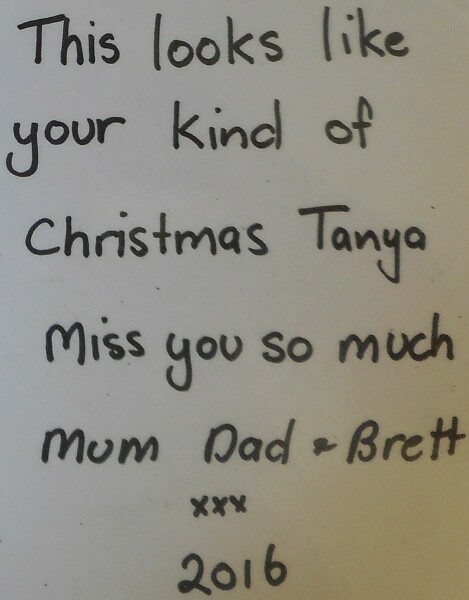 This looks like
your kind of
Christmas Tanya
Miss you so much
Mum Dad & Brett
xxx
2016